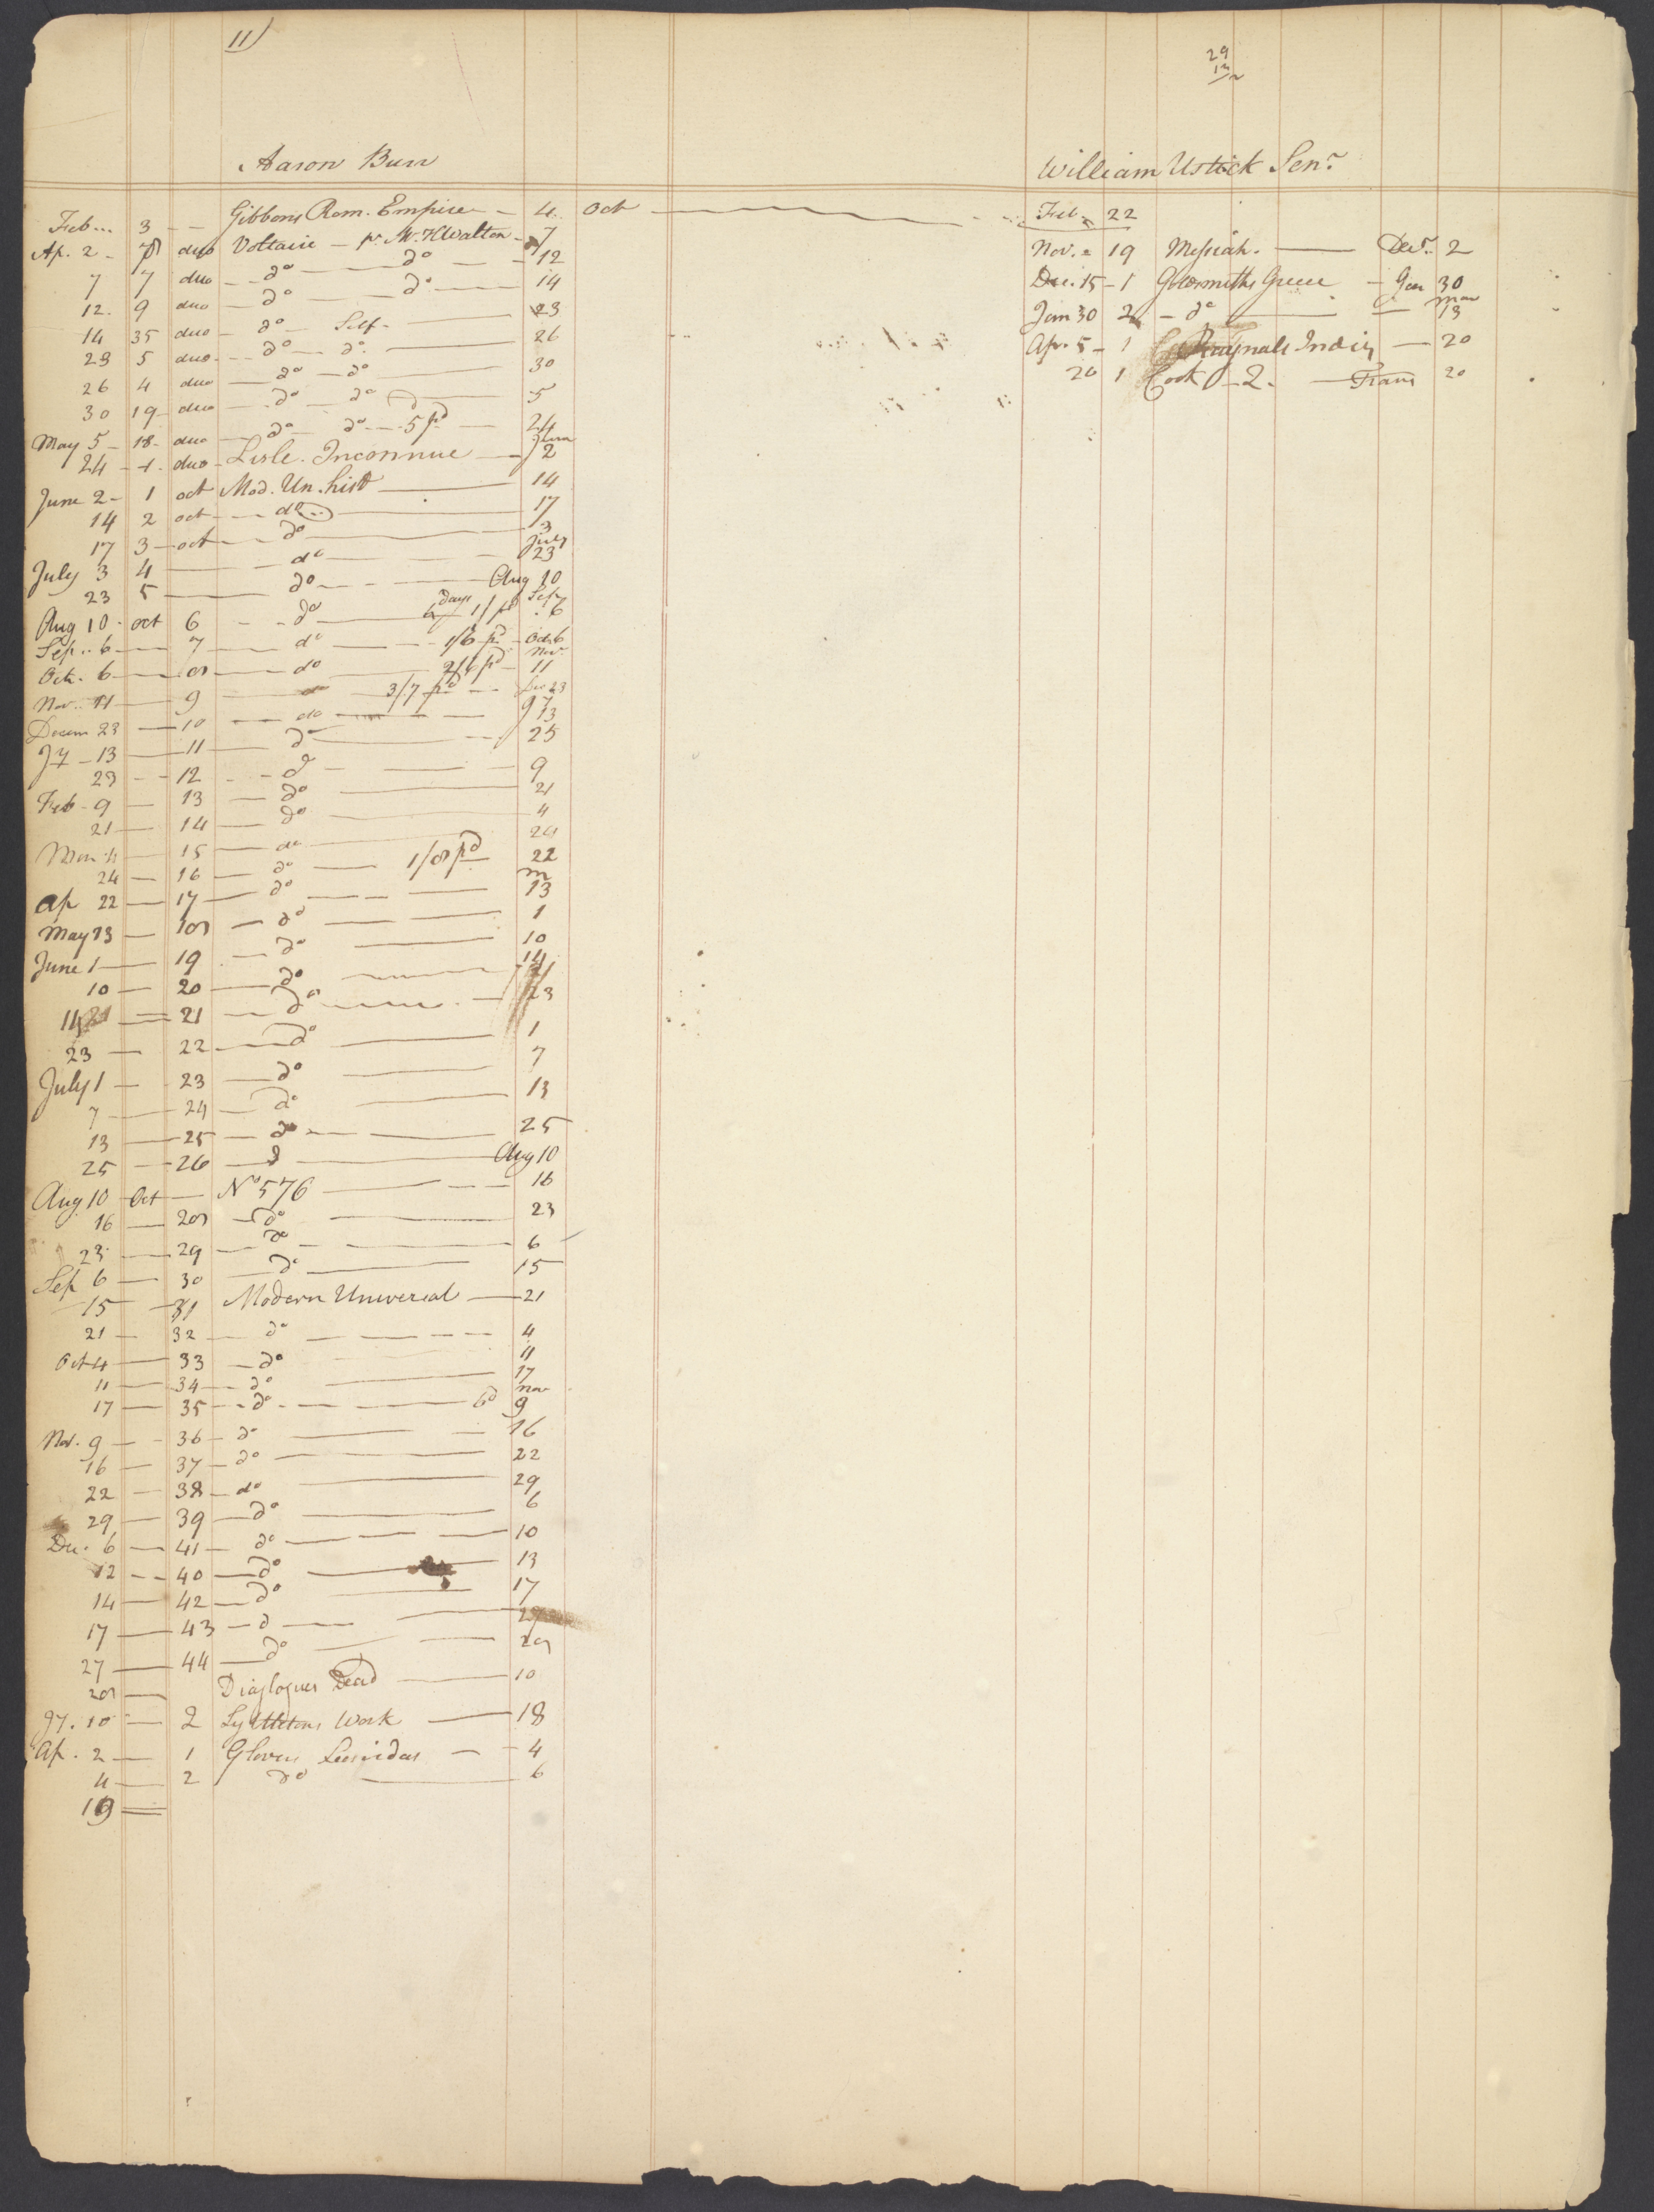 11
29
Aaron Burr
Feb 3 Gibbons Rom. Empire 4 Oct
Ap. 2 duo Voltaire pr. Mr. H Walton 7
7 7 duo do do 12
12. 9 duo do do 14
14 35 duo do Self 23
23 5 duo do do 26
26 4 duo do do 30
30 19 duo do do 5
May 5 18 duo do do 5 pd 24
24 1 duo Lisle Inconnue June 2
June 2 1 oct Mod. Un. hist 14
14 2 oct do 17
17 3 oct do July 3
July 3 4 do 23
23 5 do Aug 10
Aug 10 oct 6 do 6 days 1/ pd Sep 6
Sep. 6 7 do 1/6 pd Oct 6
Oct. 6 8 do pd Nov 11
Nov. 11 9 do 3/7 pd Dec 23
Decem 23 10 do 13
Jy 13 11 do 23
23 12 do 9
Feb 9 13 do 21
21 14 do 4
Mar 4 15 do 24
24 16 do 1/8 pd 22
Ap 22 17 do m 13
May 13 18 do 1
June 1 19 do 10
10 20 do 14
14 21 do 23
23 22 do 1
July 1 23 do 7
7 24 do 13
13 25 do 25
25 26 do Aug 10
Aug 10 Oct No 576 16
16 28 do 23
23 29 do 6
Sep 6 30 do 15
15 31 Modern Universal 21
21 32 do 4
Oct 4 33 do 11
11 34 do 17
17 35 do 6d nov 9
Nov. 9 36 do 16
16 37 do 22
22 38 do 29
29 39 do 6
Dec. 6 41 do 10
12 40 do 13
14 42 do 17
17 43 do 27
27 44 do 28
28 Diaglogues Dead 10
Jy. 10 2 Lyttletons Work 18
Ap. 2 1 Glovers Leonidas 4
4 2 do 6
19
William Ustick Senr
Feb. 22
Nov. 19 Messiah. Decr. 2
Dec. 15 1 Goldsmiths Greece Jan 30
Jan 30 2 do mar 13
Ap. 5 1 Raynals Indies 20
20 1 Cook 2 20